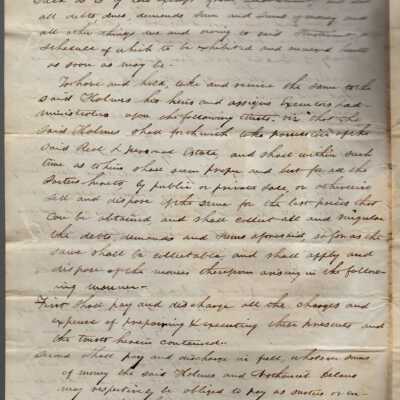 all debts dues demands sum and sums of money and
all other things due and owing to said
Schedule of which to be exhibited and annexed hereto
as soon as may be.
To have and hold, take and receive the same to the
said Holmes his heirs and assigns Executors & ad-
ministrators upon the following trusts. viz that the
said Holmes shall forthwith take possession of the
said Real & personal Estate, and shall within such
time as to him shall seem proper and best for all the
parties hereto, by public or private sale, or otherwise
sell and dispose of the same for the best prices that
can be obtained and shall collect all and singular
the debts, demands and sums aforesaid so far as the
same shall be collectable, and shall apply and
dispose of the monies therefrom arising in the follow-
ing manner-
First shall pay and discharge all the charges and
expense of preparing & executing these presents and
the trusts herein contained-
Second shall pay and discharge in full, whatever sums
of money the said Holmes and Nathaniel
may respectively be obliged to pay as sureties or en-